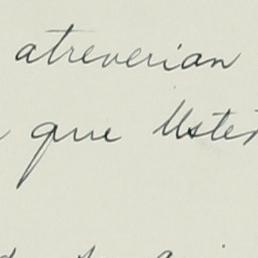 atreverian
que Uste